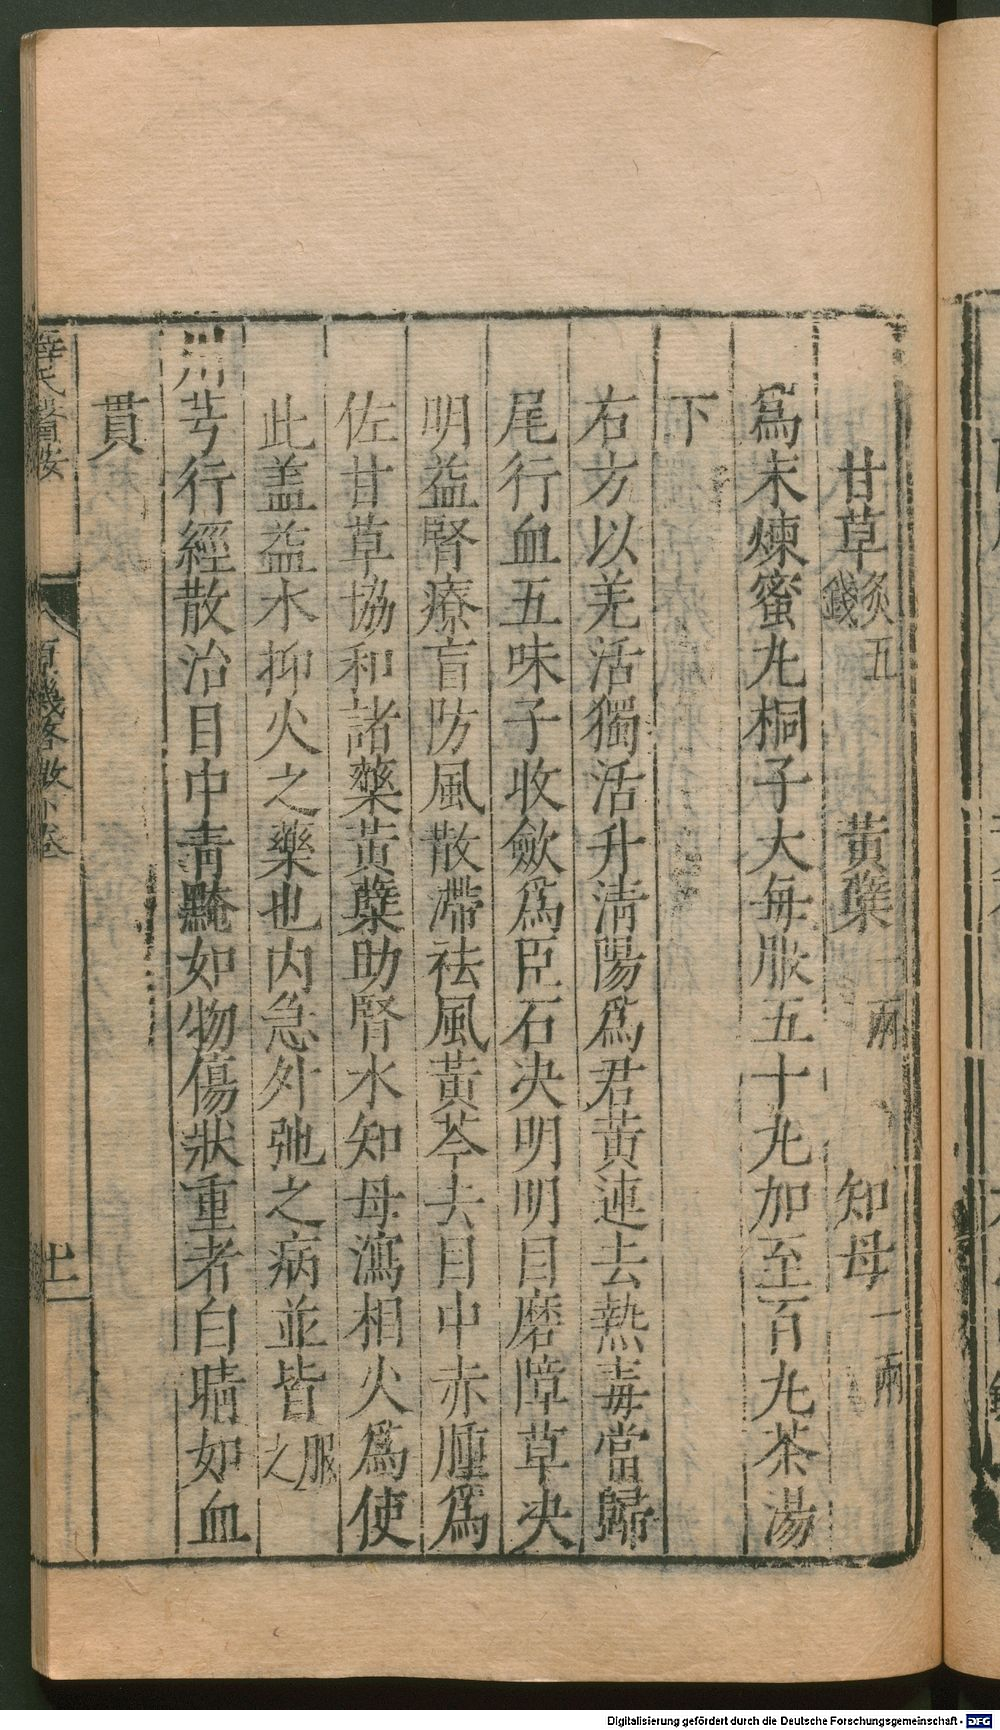 甘草炙五錢　黃蘗一兩　知母一兩
爲末煉蜜丸桐子大每服五十丸加至百丸茶湯
下
右方以羌活獨活升淸陽爲君黃連去熱毒當歸
尾行血五味子收歛爲臣石决明明目磨障草决
明益腎療盲防風散滯祛風黃芩去目中赤腫爲
佐甘草協和諸藥黃蘗助腎水知母瀉相火爲使
此盖益水抑火之藥也内急外弛之病並皆服之
川芎行經散治目中靑黤如物傷狀重者白睛如血
貫
薛氏醫按　原機啓微下卷　十一
Digitalisierung gefördert durch die Deutsche Forschungsgemeinschaft - DFG